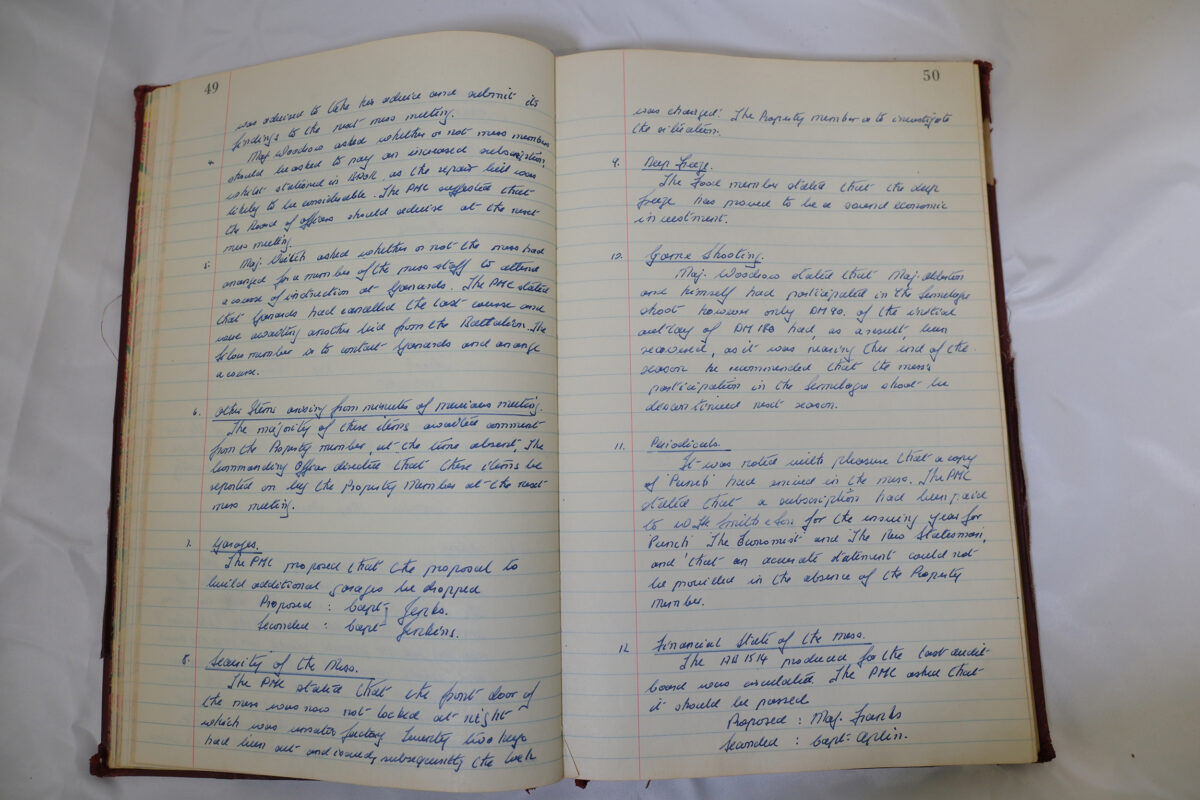 49
was advised to take his advice and submit its
findings to the next mess meeting.
4. Maj. Woodrow asked whether or not mess members
should be asked to pay an increased subscription,
whilst stationed in BAOR, as the repair bill was
likely to be considerable. The PMC suggested that
the Board of officers should advise at the next
mess meeting.
5. Maj. asked whether or not the mess had
arranged for a member of the mess staff to attend
a course of instruction at Gonards. The PMC stated
that Gonards had cancelled the last course and
were awaiting another bid from the Battalion. The
member is to contact Gonards and arrange
a course.
6. Other Items arising from minutes of previous meeting.
The majority of these items awaited comment
from the Property member, at the time absent. The
Commanding Officer directed that these items be
reported on by the Property Member at the next
mess meeting.
7. Garages.
The PMC proposed that the proposal to
build additional garages be dropped
Proposed : Capt.
Seconded : Capt. Jenkins.
8. Security of the Mess.
The PMC stated that the front door of
the mess was now not locked at night
which was unsatisfactory. Seventy two keys
had been cut and issued, subsequently the lock
50
was changed. The Property member is to investigate
the situation.
9. Deep Freeze.
The Food member stated that the deep
freeze has proved to be a sound economic
investment.
10. Game Shooting.
Maj. Woodrow stated that Maj.
and himself had participated in the Sennelager
shoot however only DM 90. of the initial
outlay of DM 180 had, as a result, been
recovered, as it was nearing the end of the
season he recommended that the mess
participation in the Sennelager shoot be
discontinued next season.
11. Periodicals.
It was noted with pleasure that a copy
of Punch had arrived in the mess. The PMC
stated that a subscription had been paid
to WH Smith & Son for the ensuing year for
Punch The Economist and The New Statesman,
and that an accurate statement could not
be provided in the absence of the Property
member.
12. Financial State of the mess.
The AB 1514 produced for the last audit
board was circulated. The PMC asked that
it should be passed
Proposed : Maj. Franks
Seconded : Capt. Aplin.